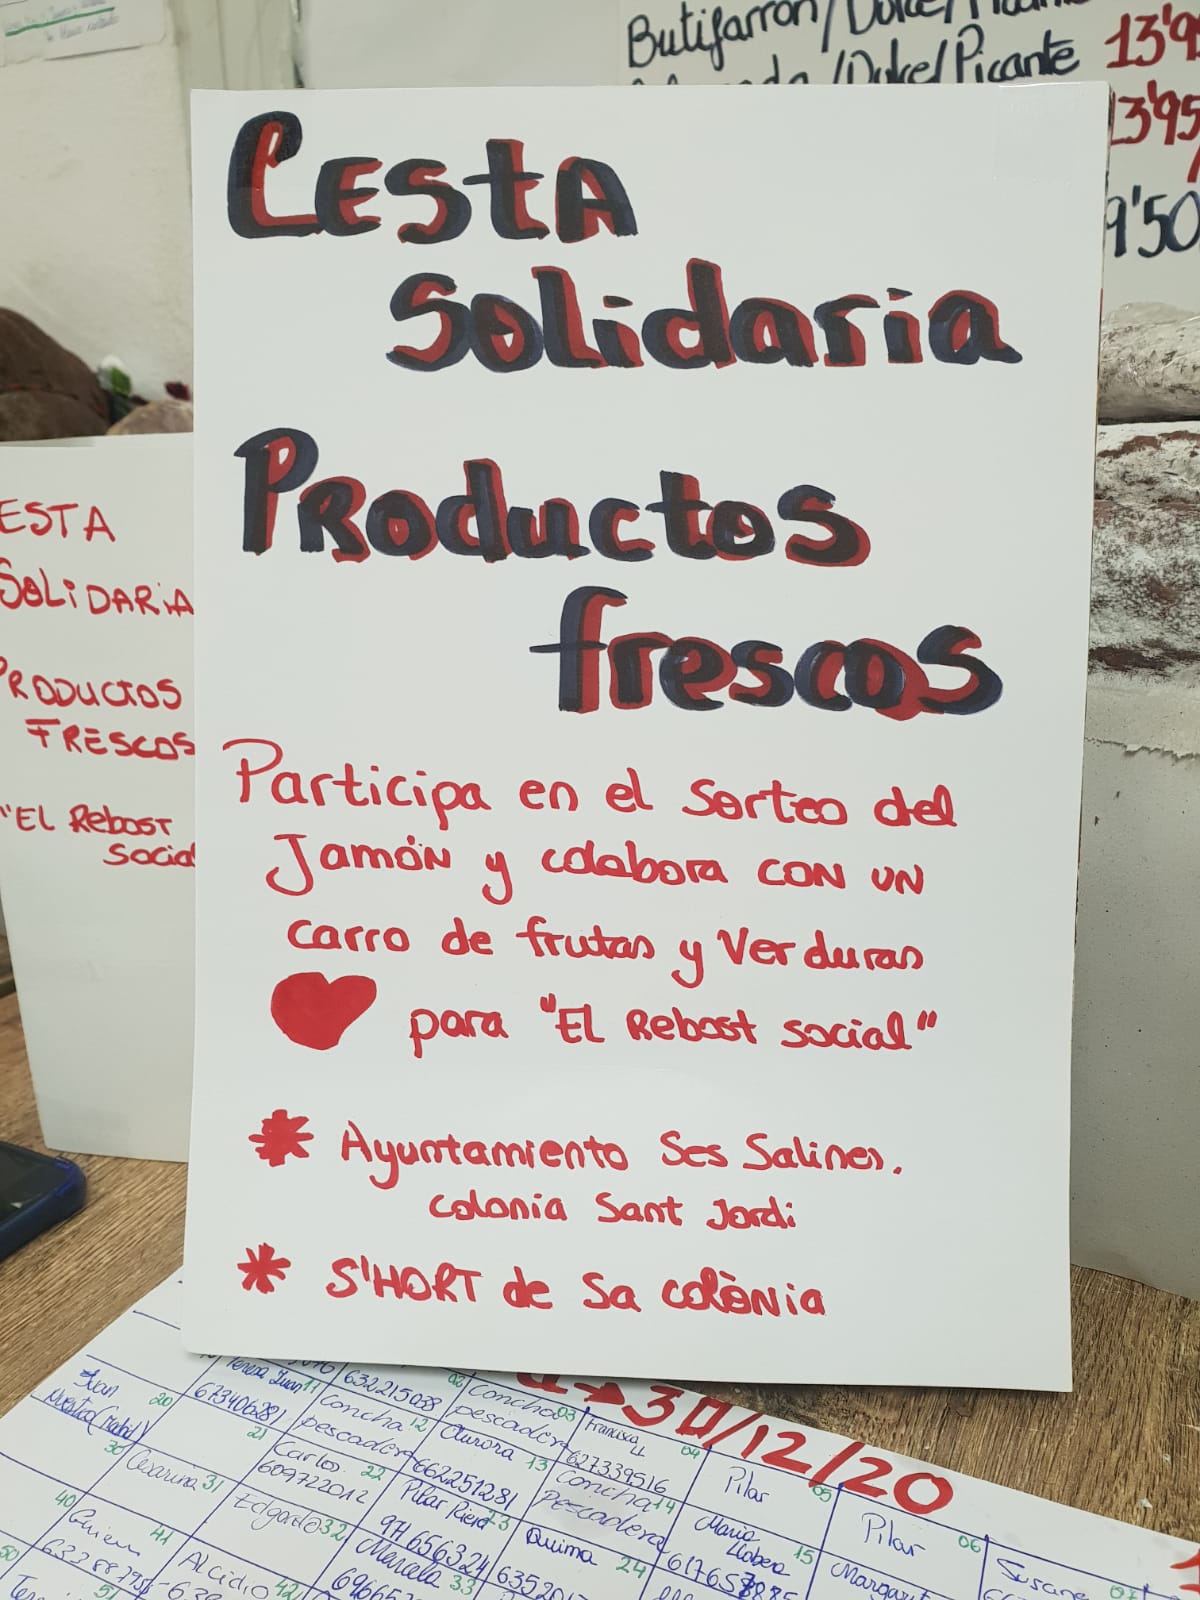 Butifarrón/Dulce/Picante 13'9
/Dulce/Picante 13'95
9'50
CESTA
Solidaria
PRODUCTOS
frescos
Participa en el Sorteo del
Jamón y colabora con un
carro de frutas y Verduras
para "El Rebost social"
* Ayuntamiento Ses Salines.
colonia Sant Jordi
* S'HORT de Sa colònia
ESTA
SOLIDARIA
PRODUCTOS
FRESCOS
"EL Rebost
social
30/12/20
Teresa Juan 11 632215038 02 Concha 03 Francisca 04 Pilar 05 Pilar 06 Susane 07
673406281 Concha 12 pescadera 627339516
20 pescadera Aurora 13 Concha 14 Maria 15 Margarit
21 Carlos 22 662251281 Pescadera Llobera
30 Cesarina 31 609722012 Pilar Riera 23 Quima 24
40 Edgard 32 971656324
41 Alcidio 42 Marcela 33
50 51